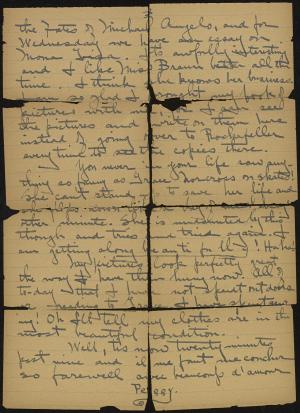 3
the Fates of Michael Angelo, and for
Wednesday we have an essay on
Mona Lisa. It's awfully interesting
and I like Miss Braun better all the
time. I think she knows her business.
am so glad I brought my book of
pictures with me
the pictures and write on them here
instead of going over to Rockefeller
every time to see the copies there.
You never in your life saw any-
thing so funny as Grace Norcross on skates!
She can't stand up to save her life and
other minute. She is undaunted by this
though and tries and tries again. I
am getting along beautifully! Ha! ha!
My pictures look perfectly great
the way I have them hung now. All of
to-day that I not spent outdoors
I have spent
ing! Oh I'll tell my clothes are in the
most beautiful condition.
Well, it's now twenty minutes
past nine and il me faut me coucher
so farewell avec beaucoup d'amour
Peggy.